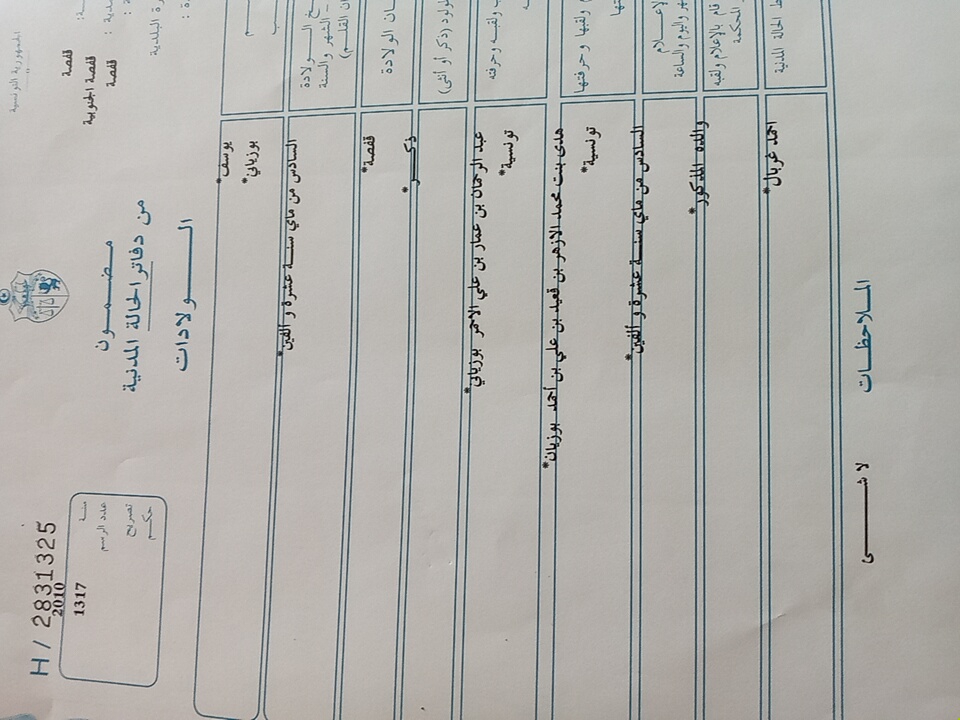 الجمهورية التونسية
قفصة
قفصة الجنوبية
قفصة
H / 2831325
سنة 2010
عدد الرسم 1317
تصريح
حكم
مضمون
من دفاتر الحالة المدنية
الـولادات
يوسف*
بوزياني*
الـولادة
الشهر والسنة
السادس من ماي سنة عشرة و ألفين*
الولادة
قفصة*
(ذكر أو أنثى)
ذكر*
ولقبه وحرفته
عبد الرحمان بن عمار بن علي الاحمر بوزياني*
تونسية*
ولقبها وحرفتها
هدى بنت محمد الازهر بن قعيد بن علي بن أحمد بوزيان*
تونسية*
واليوم والساعة
السادس من ماي سنة عشرة و ألفين*
قام بالإعلام ولقبه
المحكمة
والده المذكور*
الحالة المدنية
احمد غربال*
الملاحظات
لا شـــى